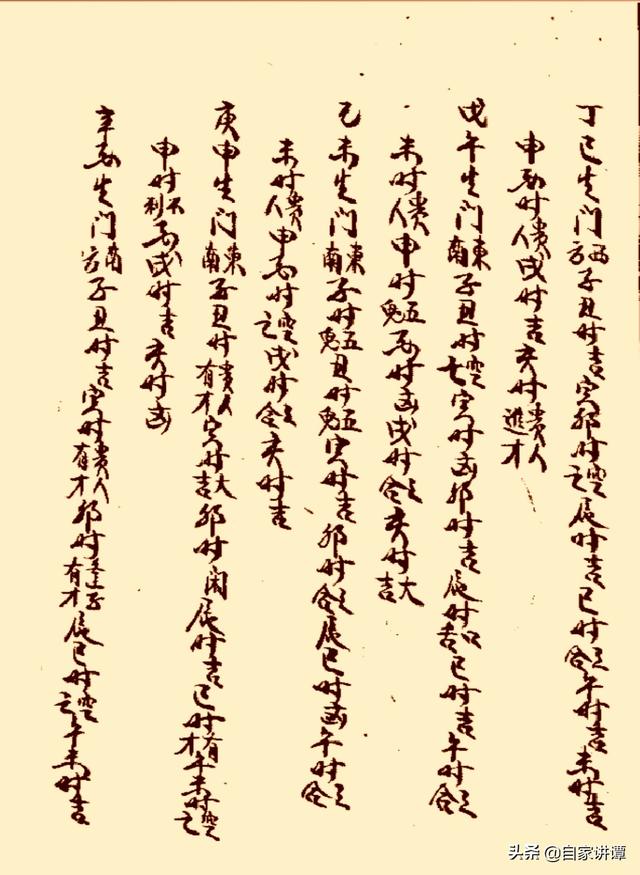 丁巳生门西方子丑时吉寅卯时空亡辰时吉巳时合午时吉未时吉
申酉时贵人戌时吉亥时贵人進才
戊午生门東南子丑时空亡寅时凶卯时吉辰时口舌巳时吉午时合
未时贵人申时五鬼酉时凶戌时合亥时大吉
己未生门東南子时五鬼丑时五鬼寅时吉卯时合辰巳时凶午时合
未时贵人申酉时空亡戌时合亥时吉
庚申生门東南子丑时贵人有才寅时大吉卯时闲辰时吉巳时有才午未时空亡
申时不利酉戌时吉亥时凶
辛酉生门南方子丑时吉寅时贵人有才卯时有才辰巳时空亡午未时吉
头条 @自家讲谭